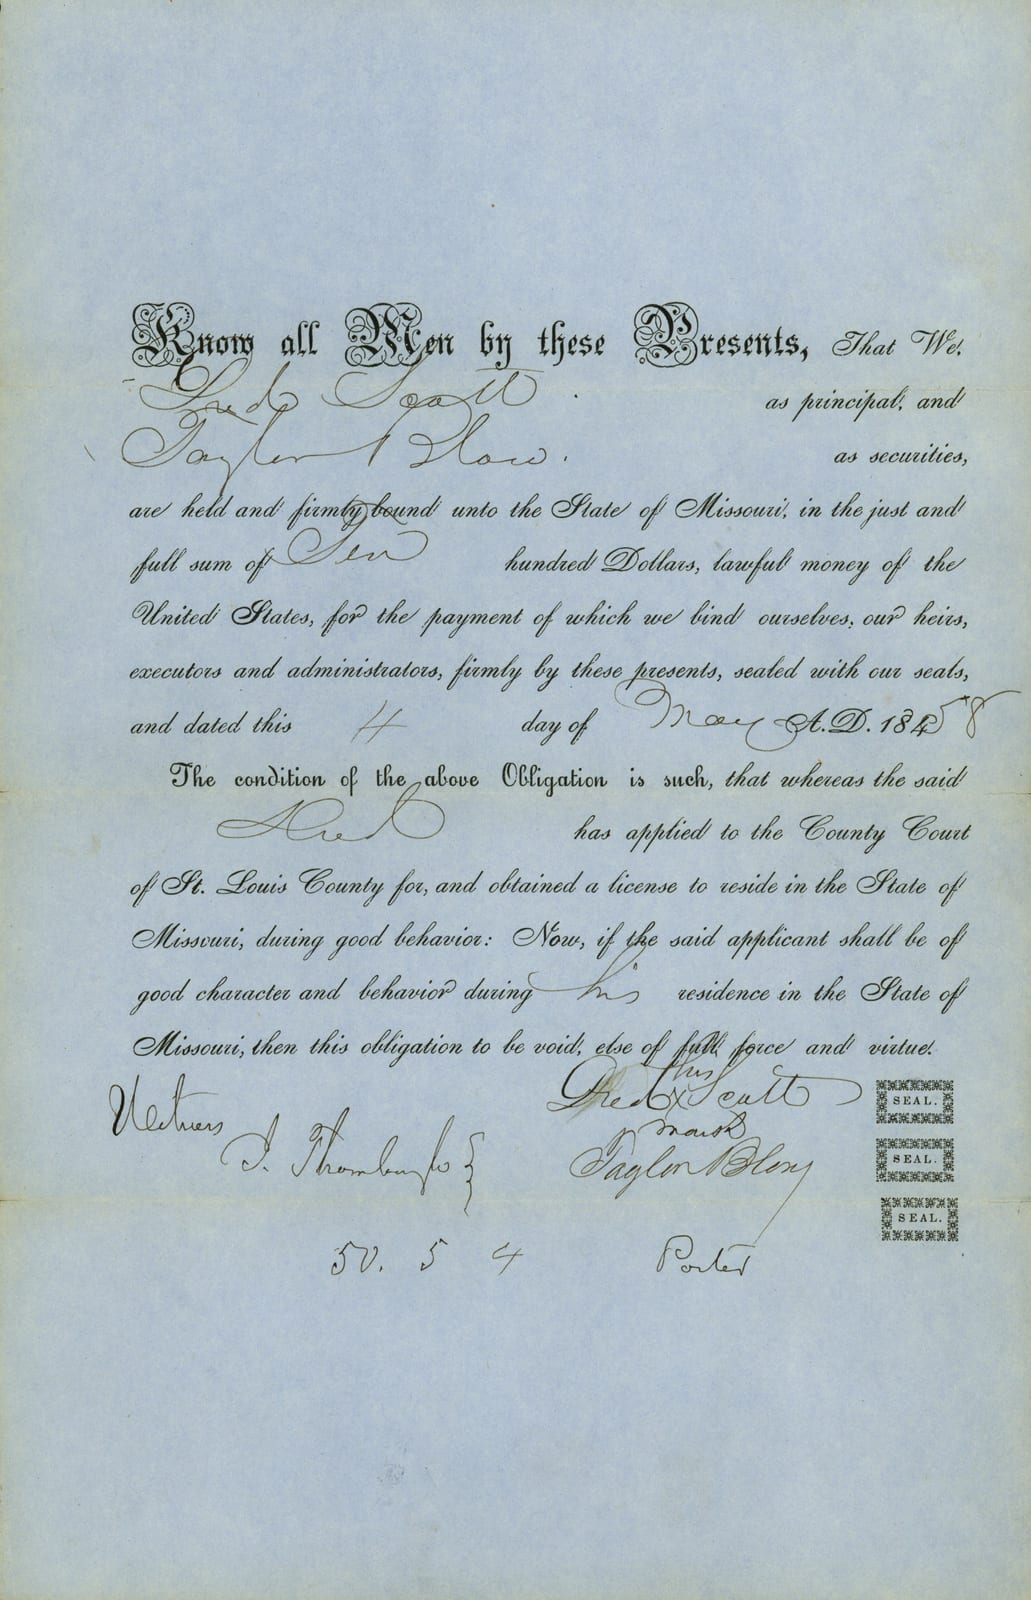 Know all Men by these Presents, That We,
Dred Scott as principal, and
Taylor Blow. as securities,
are held and firmly bound unto the State of Missouri, in the just and
full sum of Ten hundred Dollars, lawful money of the
United States, for the payment of which we bind ourselves, our heirs,
executors and administrators, firmly by these presents, sealed with our seals,
and dated this 4 day of May A.D. 184 58
The condition of the above Obligation is such, that whereas the said
Dred has applied to the County Court
of St. Louis County for, and obtained a license to reside in the State of
Missouri, during good behavior: Now, if the said applicant shall be of
good character and behavior during his residence in the State of
Missouri, then this obligation to be void, else of full force and virtue.
his
Dred x Scott SEAL.
mark
Witness
Taylor Blow SEAL.
SEAL.
50. 5 4 Porter